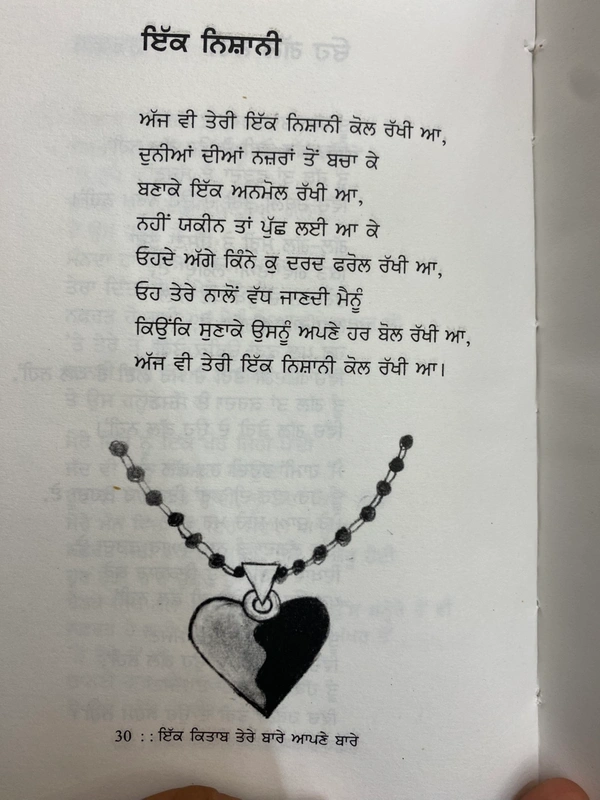 ਇੱਕ ਨਿਸ਼ਾਨੀ
ਅੱਜ ਵੀ ਤੇਰੀ ਇੱਕ ਨਿਸ਼ਾਨੀ ਕੋਲ ਰੱਖੀ ਆ,
ਦੁਨੀਆਂ ਦੀਆਂ ਨਜ਼ਰਾਂ ਤੋਂ ਬਚਾ ਕੇ
ਬਣਾਕੇ ਇੱਕ ਅਨਮੋਲ ਰੱਖੀ ਆ,
ਨਹੀਂ ਯਕੀਨ ਤਾਂ ਪੁੱਛ ਲਈ ਆ ਕੇ
ਓਹਦੇ ਅੱਗੇ ਕਿੰਨੇ ਕੁ ਦਰਦ ਫਰੋਲ ਰੱਖੀ ਆ,
ਓਹ ਤੇਰੇ ਨਾਲੋਂ ਵੱਧ ਜਾਣਦੀ ਮੈਨੂੰ
ਕਿਉਂਕਿ ਸੁਣਾਕੇ ਉਸਨੂੰ ਅਪਣੇ ਹਰ ਬੋਲ ਰੱਖੀ ਆ,
ਅੱਜ ਵੀ ਤੇਰੀ ਇੱਕ ਨਿਸ਼ਾਨੀ ਕੋਲ ਰੱਖੀ ਆ।
30 : : ਇੱਕ ਕਿਤਾਬ ਤੇਰੇ ਬਾਰੇ ਆਪਣੇ ਬਾਰੇ